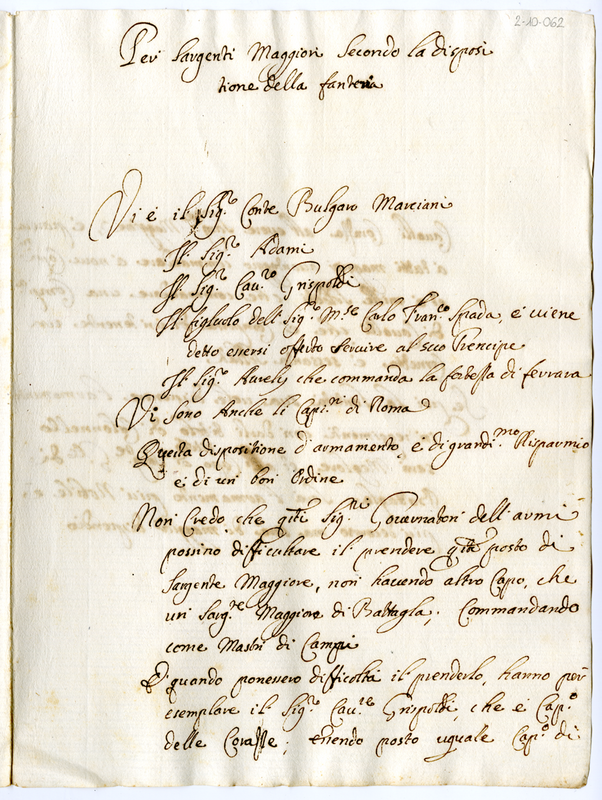 2-10-062
Per Sargenti Maggiori Secondo la disposi
tione della fanteria
Vi è il Sig.re Conte Bulgaro Marciani
Il Sig.re Adami
Il Sig.re Cau.ro Grispoldi
Il figluolo dell Sig.re M.se Carlo Fran.co Spada, è uiene
detto essersi offerto seruire al suo Prencipe
Il Sig.re Aurelj che commanda la fortessa di ferrara
Vi sono Anche li Cap.ni di Roma
Questa dispositione d'armamento, è di grandi.mo Risparmio
è di un bon Ordine
Non Credo, che q.ti Sig.ri Gouernatori dell'armi
possino difficultare il prendere q.to posto di
Sargente Maggiore, non hauendo altro Capo, che
un Sarg.te Maggiore di Battagla, Commandando
come Mastri di Campi
E quando ponessero difficoltà il prenderlo, hanno per
esemplare il Sig.re Cau.re Grispoldi, che è Cap.o
delle Corasse; essendo posto uguale Cap.o di